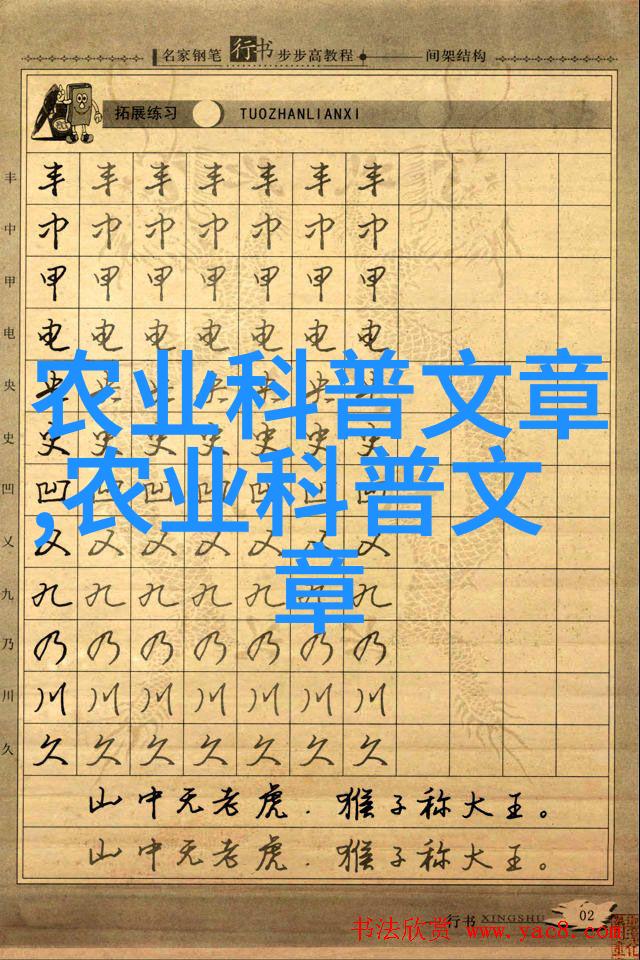 名家钢笔行书步步高教程 间架结构
拓展练习 TUOZHANLIANXI
丰 丰 丰 丰 丰 丰 丰 丰
中 中 中 中 中 中 中 中
甲 甲 甲 甲 甲 甲 甲 甲
电 电 电 电 电 电 电 电
央 央 央 央 央 央 央 央
农业科普文章
史 史 史 史 史 史 史 史
凹 凹 凹 凹 凹 凹 凹 凹
,农业科普文
乂 乂 乂 乂 乂 乂 乂 乂
章
九 九 九 九 九 九 九 九
乃 乃 乃 乃 乃 乃 乃 乃
川 川 川 川 川 川 川 川
久 久 久 久 久 久 久 久
山中无老虎．猴子称大王。
山中无老虎．猴子称大王。
行书 XINGSHU 02
书法欣赏 www.yac8.com